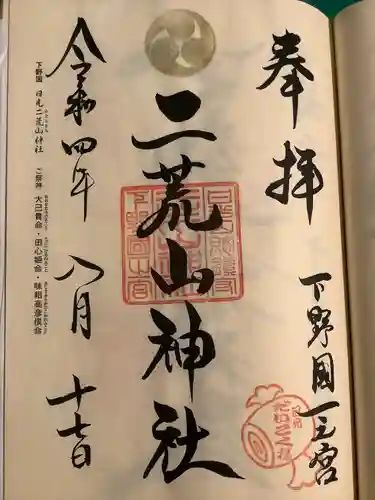 奉拝
下野國一之宮
二荒山神社
令和四年 八月 十七日
下野国 日光二荒山神社 ご祭神 大己貴命・田心姫命・味耜高彦根命